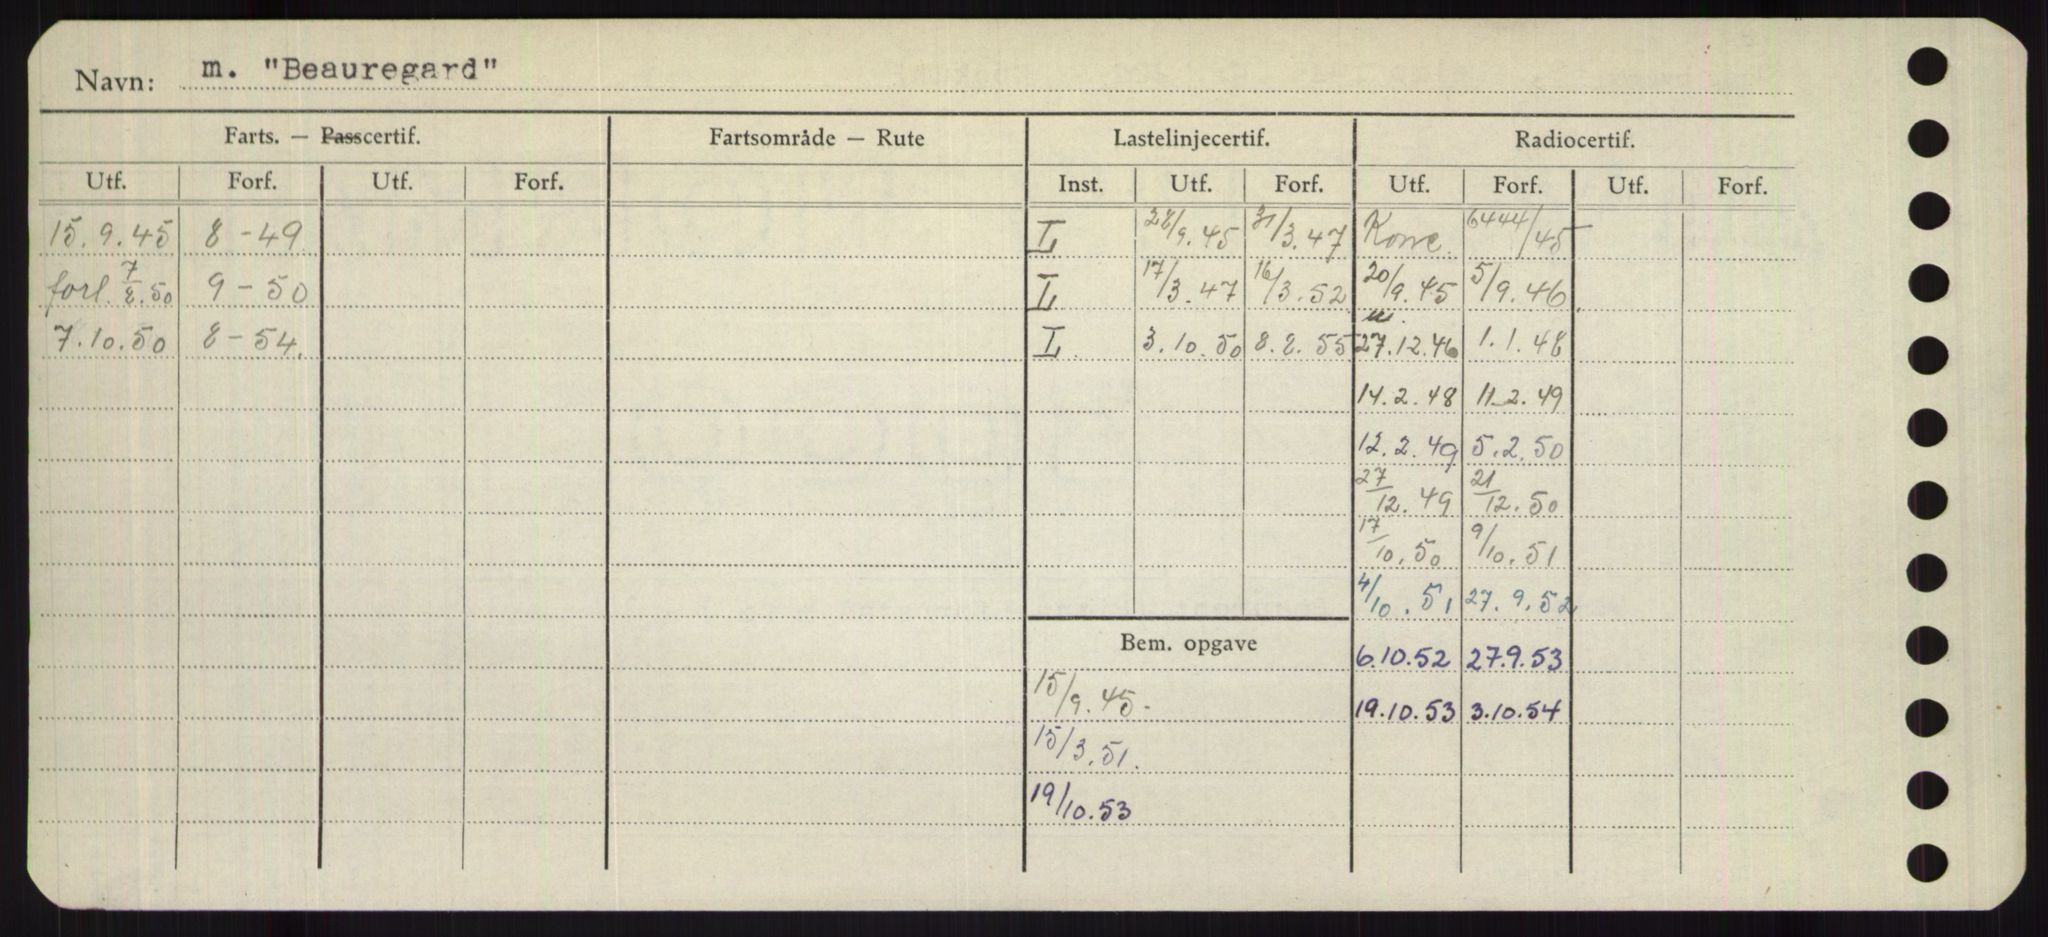 Navn: m. "Beauregard"
Farts. — Passcertif. Fartsområde — Rute Lastelinjecertif. Radiocertif.
Utf. Forf. Utf. Forf. Inst. Utf. Forf. Utf. Forf. Utf. Forf.
15.9.45 8-49 L 28/9.45 31/3.47 6444/45
forl. 7/8.50 9-50 L 17/3.47 16/3.52 20/9.45 5/9.46
7.10.50 8-54. L 3.10.50 8.8.55 27.12.46 1.1.48
14.2.48 11.2.49
12.2.49 5.2.50
27/12.49 21/12.50
17/10.50 9/10.51
4/10.51 27.9.52
Bem. opgave 6.10.52 27.9.53
15/9.45. 19.10.53 3.10.54
15/3.51.
19/10.53